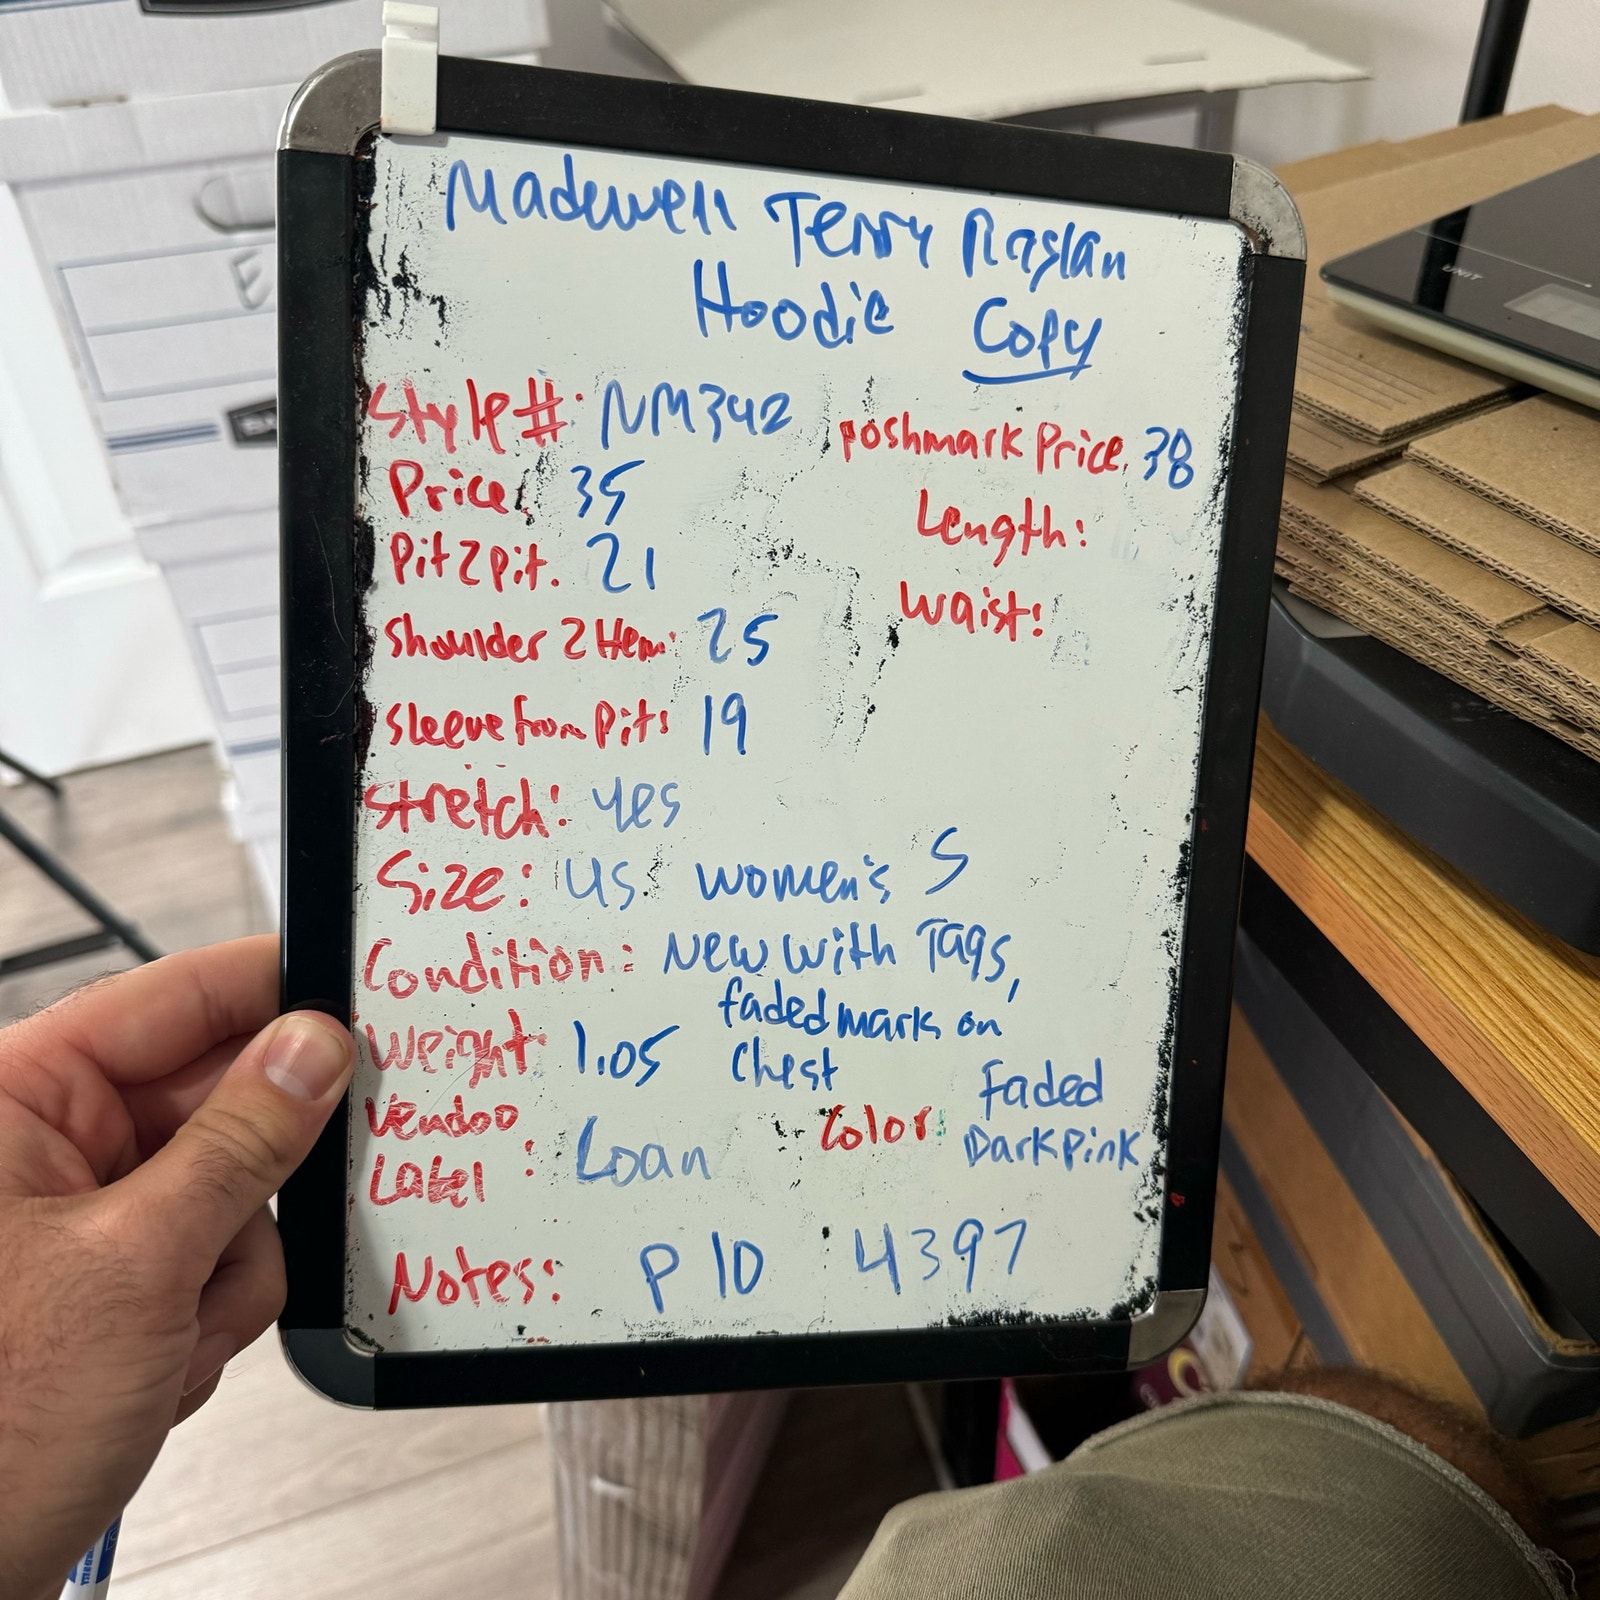 Madewell Terry Raglan
Hoodie Copy
Style #: NM342
Poshmark Price. 38
Price: 35
Length:
Pit 2 Pit. 21
Waist:
Shoulder 2 Hem: 25
Sleeve from Pit: 19
Stretch: yes
Size: US women's S
Condition: New with Tags,
faded mark on
chest
Weight: 1.05
Color: Faded
Dark Pink
Vendoo
Label: Loan
Notes: P 10 4397
UNIT
E